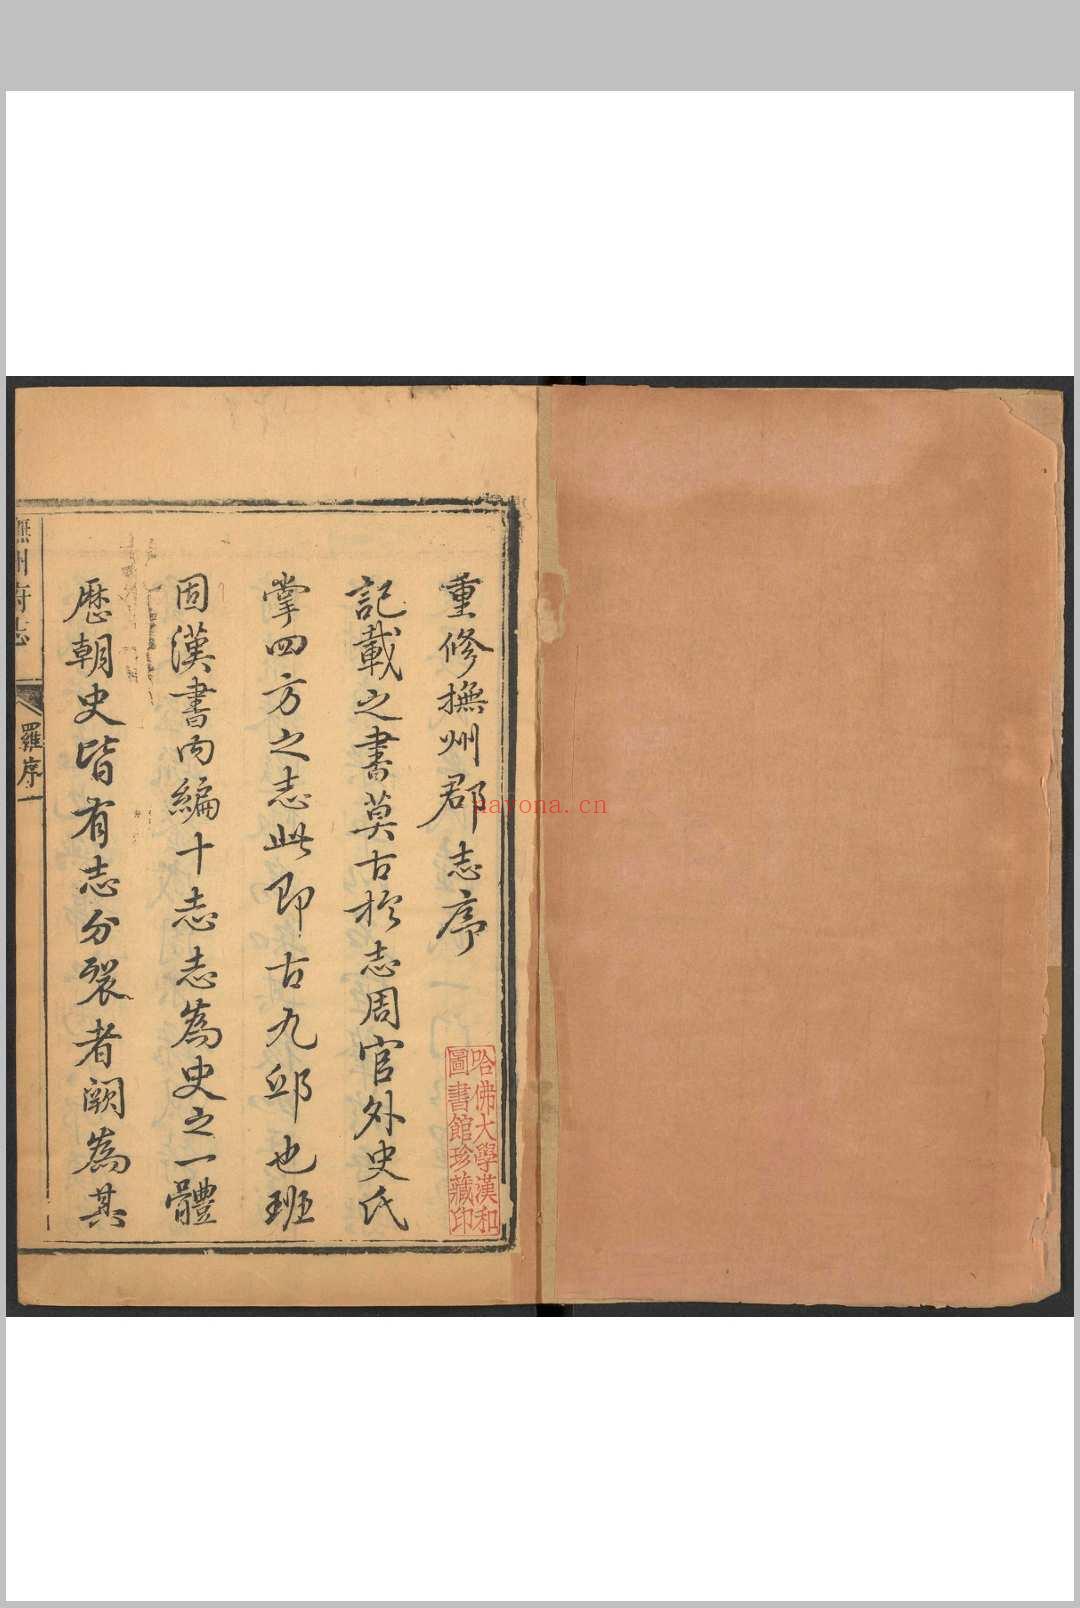 重修撫州郡志序
記載之書莫古於志周官外史氏
掌四方之志此即古九邱也班
固漢書內編十志志為史之一體
歷朝史皆有志分裂者闕為其
撫州府志
羅序
一
哈佛大學漢和
圖書館珍藏印
nayona.cn